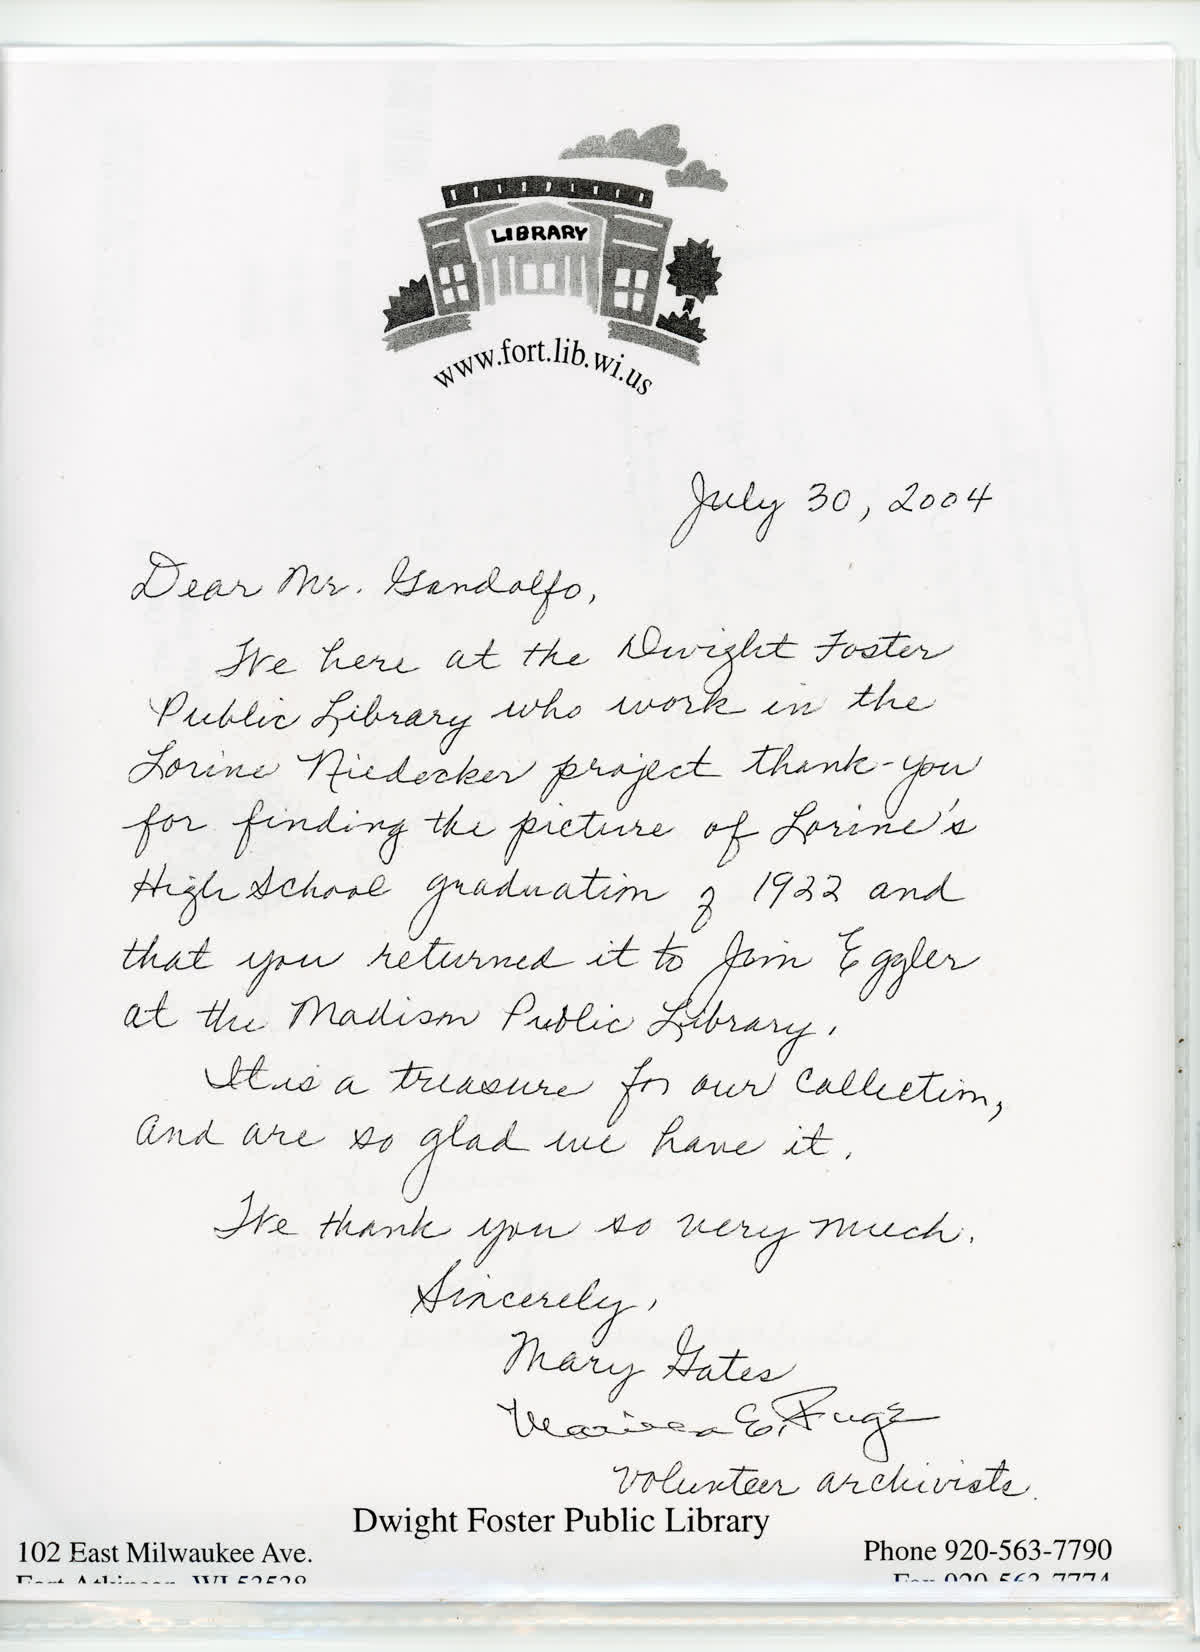 LIBRARY
www.fort.lib.wi.us
July 30, 2004
Dear Mr. Gandolfo,
We here at the Dwight Foster
Public Library who work in the
Lorine Niedecker project thank-you
for finding the picture of Lorine's
High School graduation of 1922 and
that you returned it to Jim Eggler
at the Madison Public Library.
It is a treasure for our collection,
and are so glad we have it.
We thank you so very much.
Sincerely,
Mary Gates
E.
Volunteer archivists.
Dwight Foster Public Library
102 East Milwaukee Ave.
Phone 920-563-7790
Fort Atkinson, WI 53538
Fax 920-563-7774